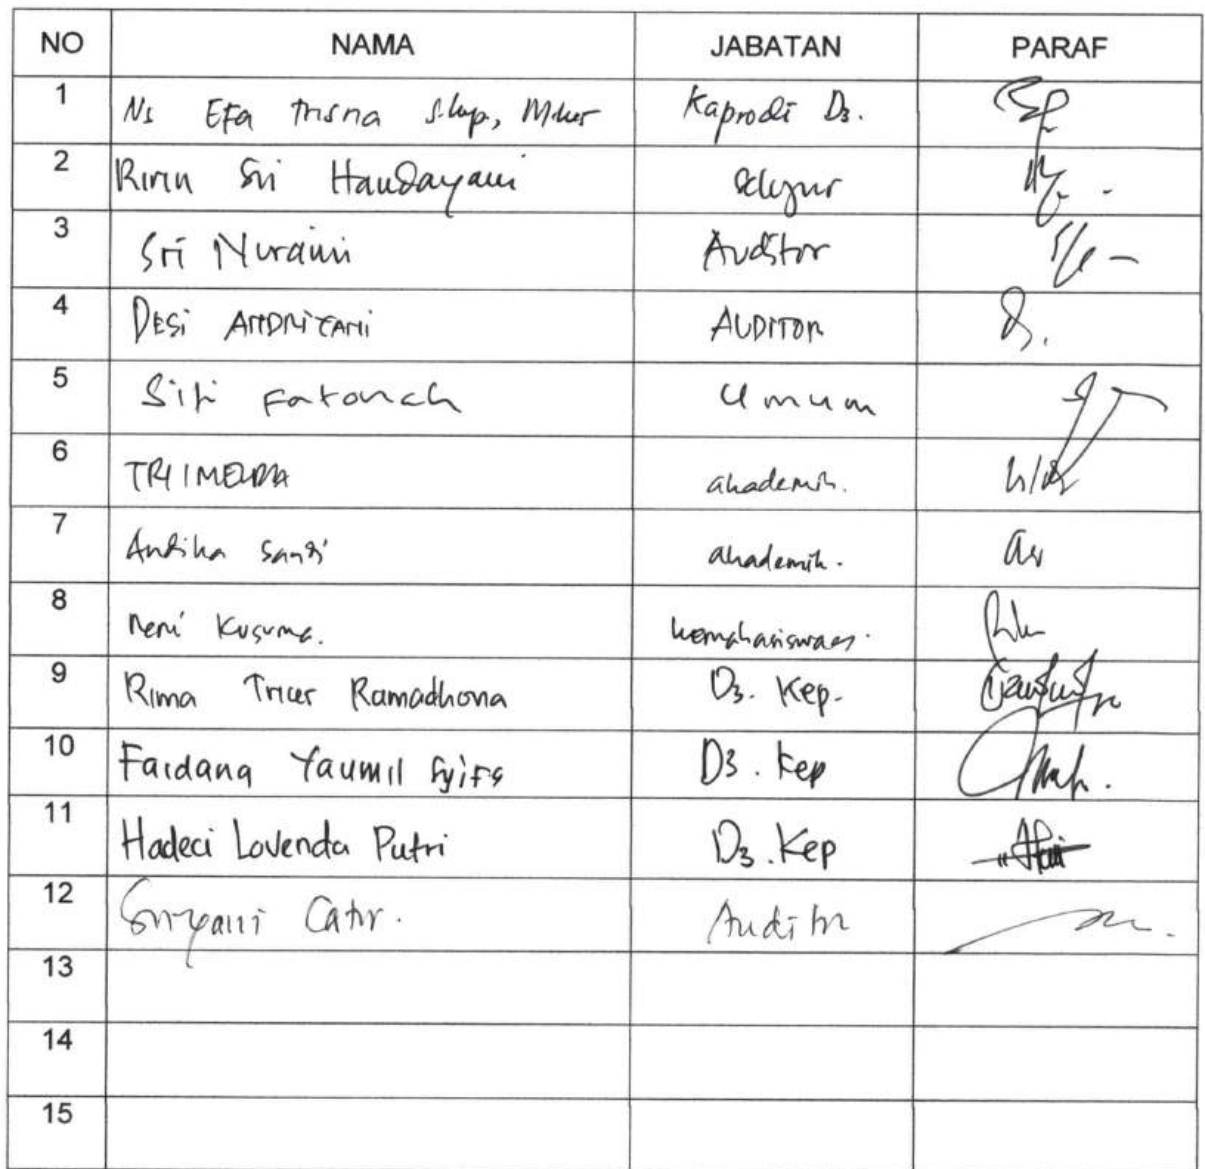 NO NAMA JABATAN PARAF
1 Ns Efa Trisna S.kep, Mkes Kaprodi D3.
2 Ririn Sri Handayani
3 Sri Nuraini Auditor
4 DESi ANDRiYANi AUDITOR
5 Siti Fatonah Umum
6 TRI akademik.
7 Andika Sandi akademik.
8 Reni Kusuma. kemahasiswaan.
9 Rima Ramadhona D3. Kep.
10 Faidana Yaumil Syifa D3. Kep
11 Hadeci Lovenda Putri D3. Kep
12 Auditor
13
14
15